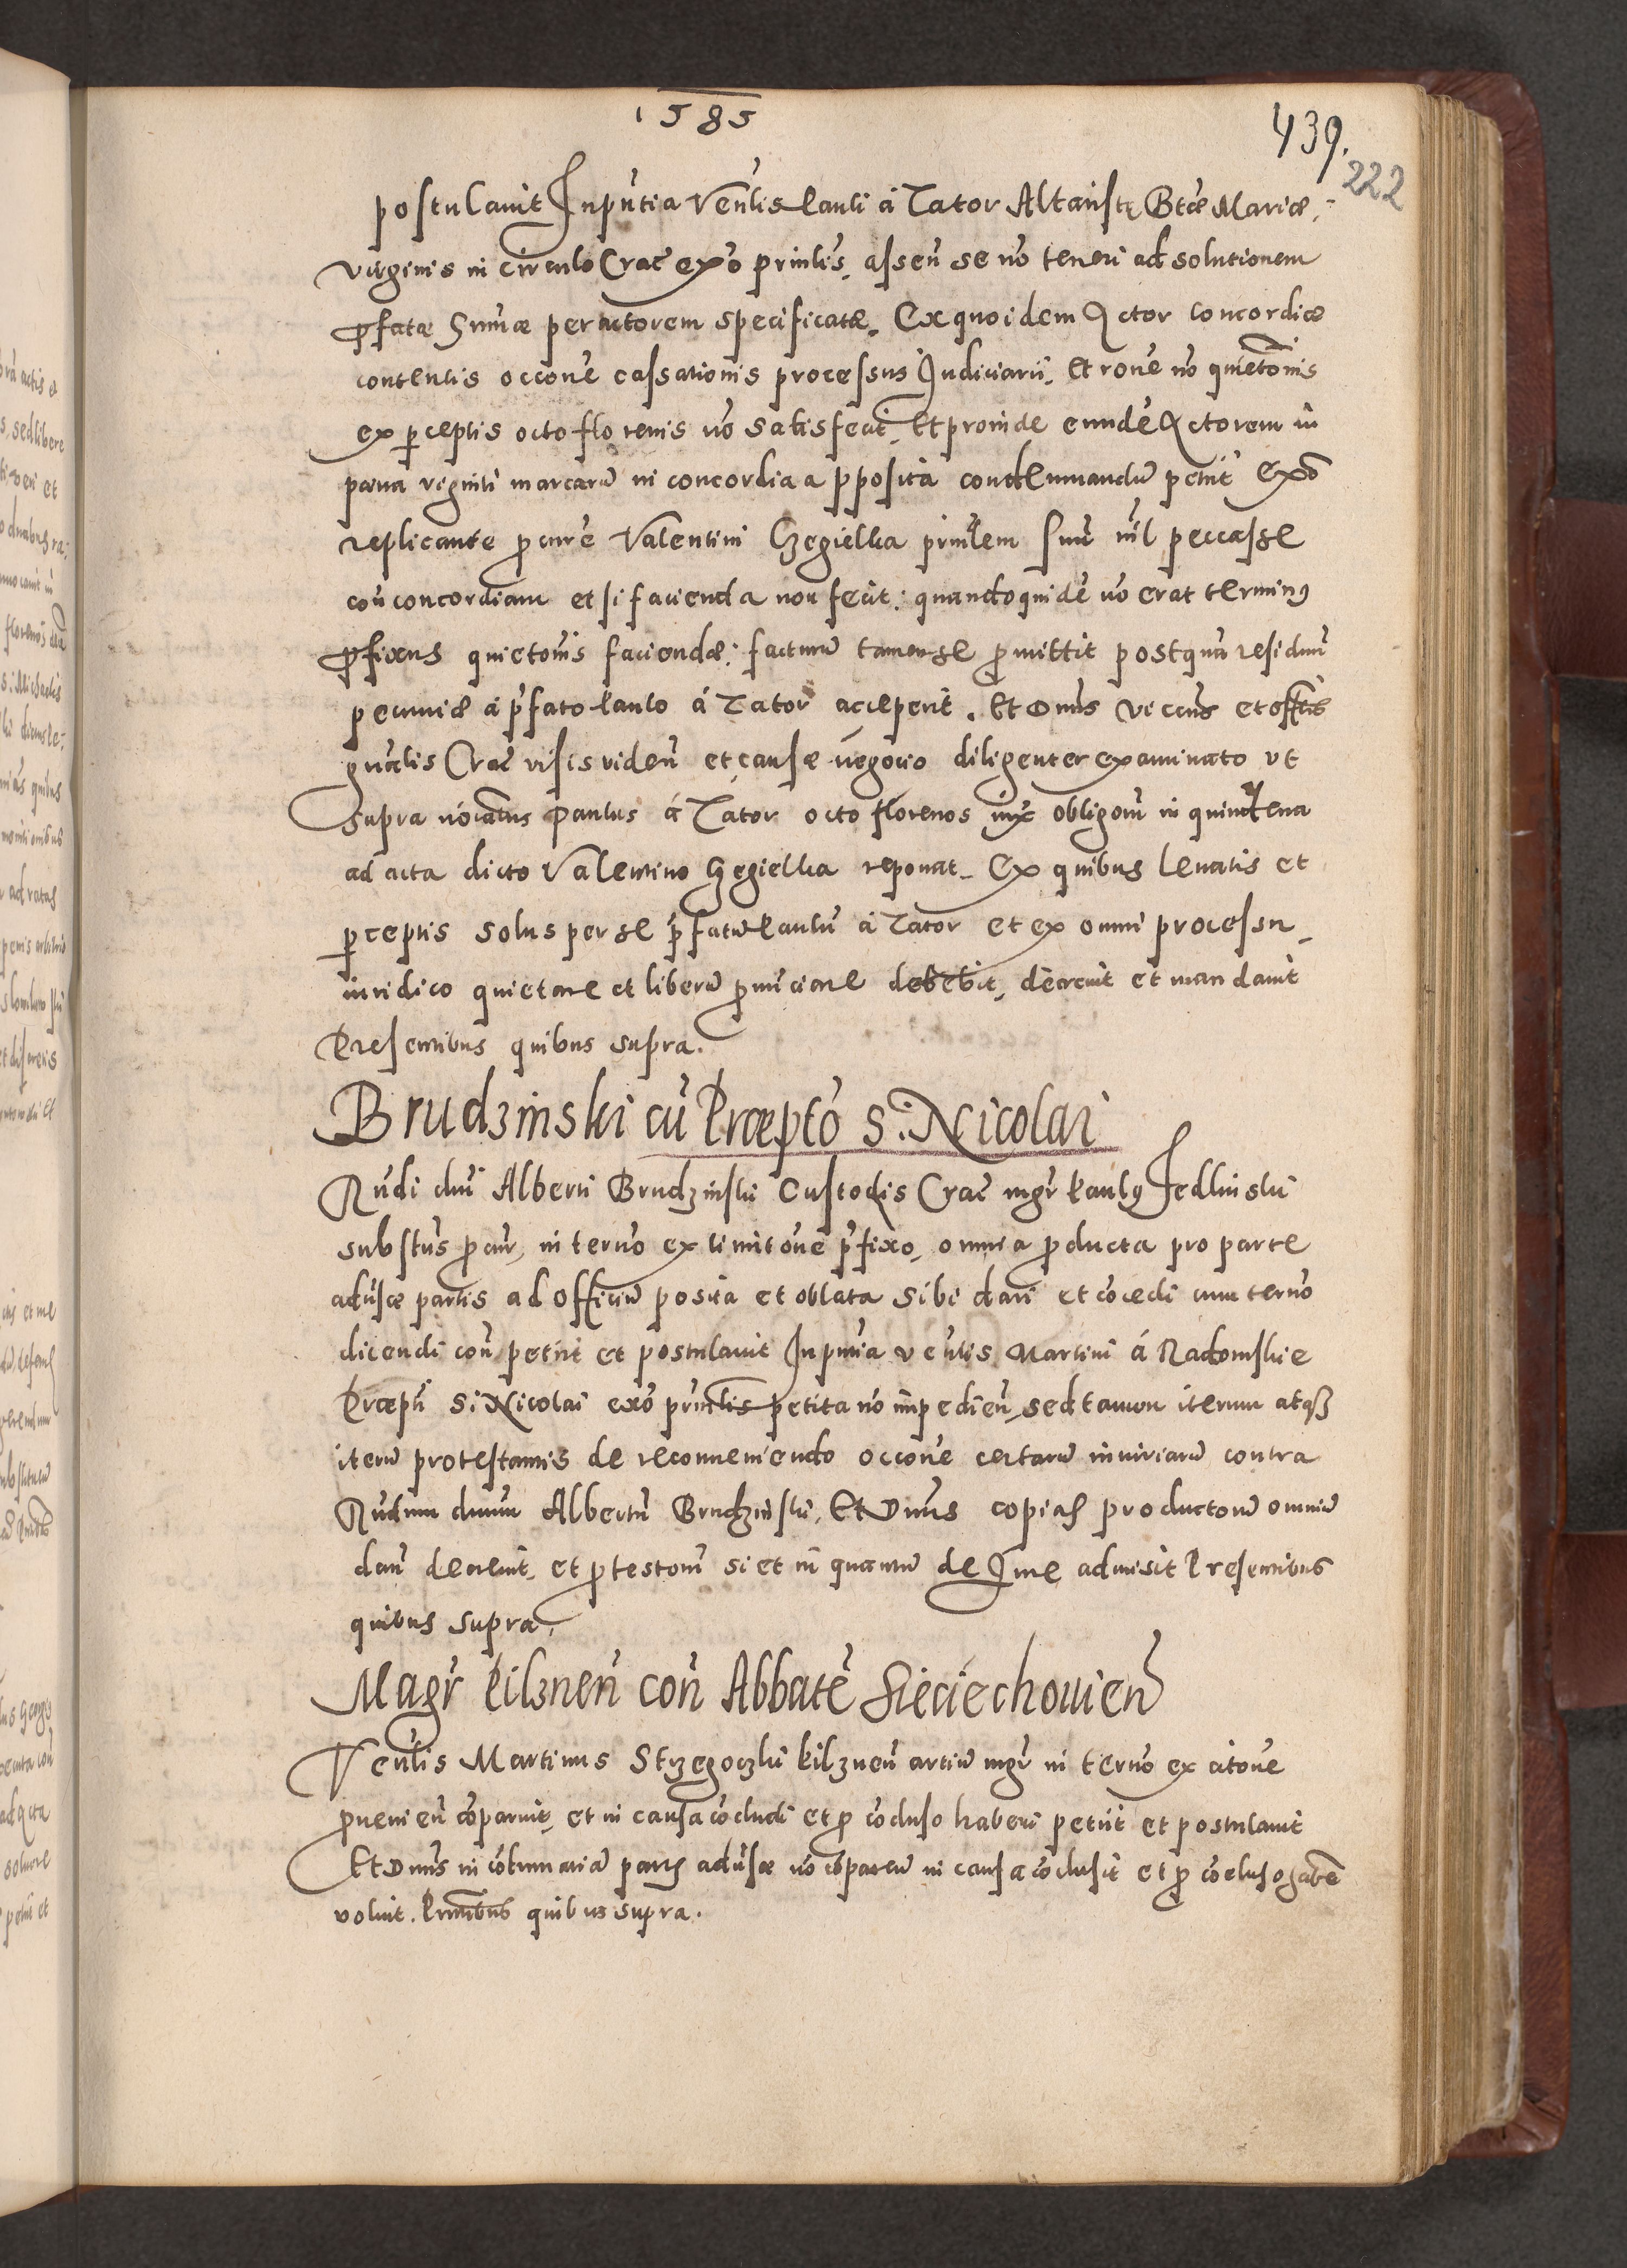 1585
439.
222
postulavit In pn̄tia Ven̄lis Pauli à Tator Altaristę Btæ Mariæ
virginis in circulo Crac̄ ex0̄ prin̄lis, asseren̄ se nō teneri ad solutionem
p̄fatæ Sum̄æ per actorem specificatæ. Ex quo idem Actor concordiæ
contentis occōne cassationis processus Judiciarii, Et rōne nō quietōnis
ex p̄ceptis octo florenis nō satisfecit, Et proinde eundē Actorem in
pœna viginti marcarū in concordia apposita condemnandū petiit Exō
replicante p̄curē Valentini Czegielka prin̄lem suū nīl peccasse
coñ concordiam etsi facienda non fecit: quandoquidē nō erat terminus
p̄fixus quietōnis faciendæ: facturū tamen se p̄mittit postquā residuū
pecuniæ à p̄fato Paulo á Tator acceperit. Et Dn̄s Viceus et offlis
gn̄alis Crac̄ visis viden̄ et causæ negocio diligenter examinato vt
supra nōiatus Paulus á Tator octo florenos iux̄ obligōn̄ in quindena
ad acta dicto Valentino Czegielka reponat. Ex quibus levatis et
p̄ceptis solus per se p̄fatū Paulū à Tator et ex omni processu
iuridico quietare et liberū p̄nūciare debebit, decrevit et mandavit
Presentibus quibus supra.
Brudzinski cū Præptō S. Nicolai
Rn̄di dn̄i Alberti Brudzinski Custodis Crac̄ mgr̄ Paulus Jedlinski
substūs p̄cur̄, in tern̄o ex limitōne p̄fixo, omnia p̄ducta pro parte
adūsæ partis ad officiū posita et oblata sibi dari et cōcedi cum tern̄o
dicendi coñ petiit et postulavit In pn̄tia ven̄lis Martini á Radomskie
Præpti S. Nicolai exō prin̄lis petita nō impedien̄, sed tamen iterum atq3
iterū protestantis de reconveniendo occōne certarū iniuriarū contra
Rn̄dum dnūm Albertū Brudzinski, Et Dn̄us copias productorū omniū
dari decrevit, et p̄testōn̄ si et in quantū de Jure admisit Presentibus
quibus supra.
Magr̄ Pilznen̄ coñ Abbatē Sieciechovien̄
Ven̄lis Martinus Strzegoczki Pilznen̄ artiū mgr̄ in tern̄o ex citōne
p̄venien̄ cōparuit, et in causa cōcludi et p̄ cōcluso haberi petiit et postulavit
Et Dn̄us in cōtumatiā partis adūsæ nō cōparen̄ in causa cōclusit et p̄ cōcluso habē
voluit. Prn̄tibus quibus supra.